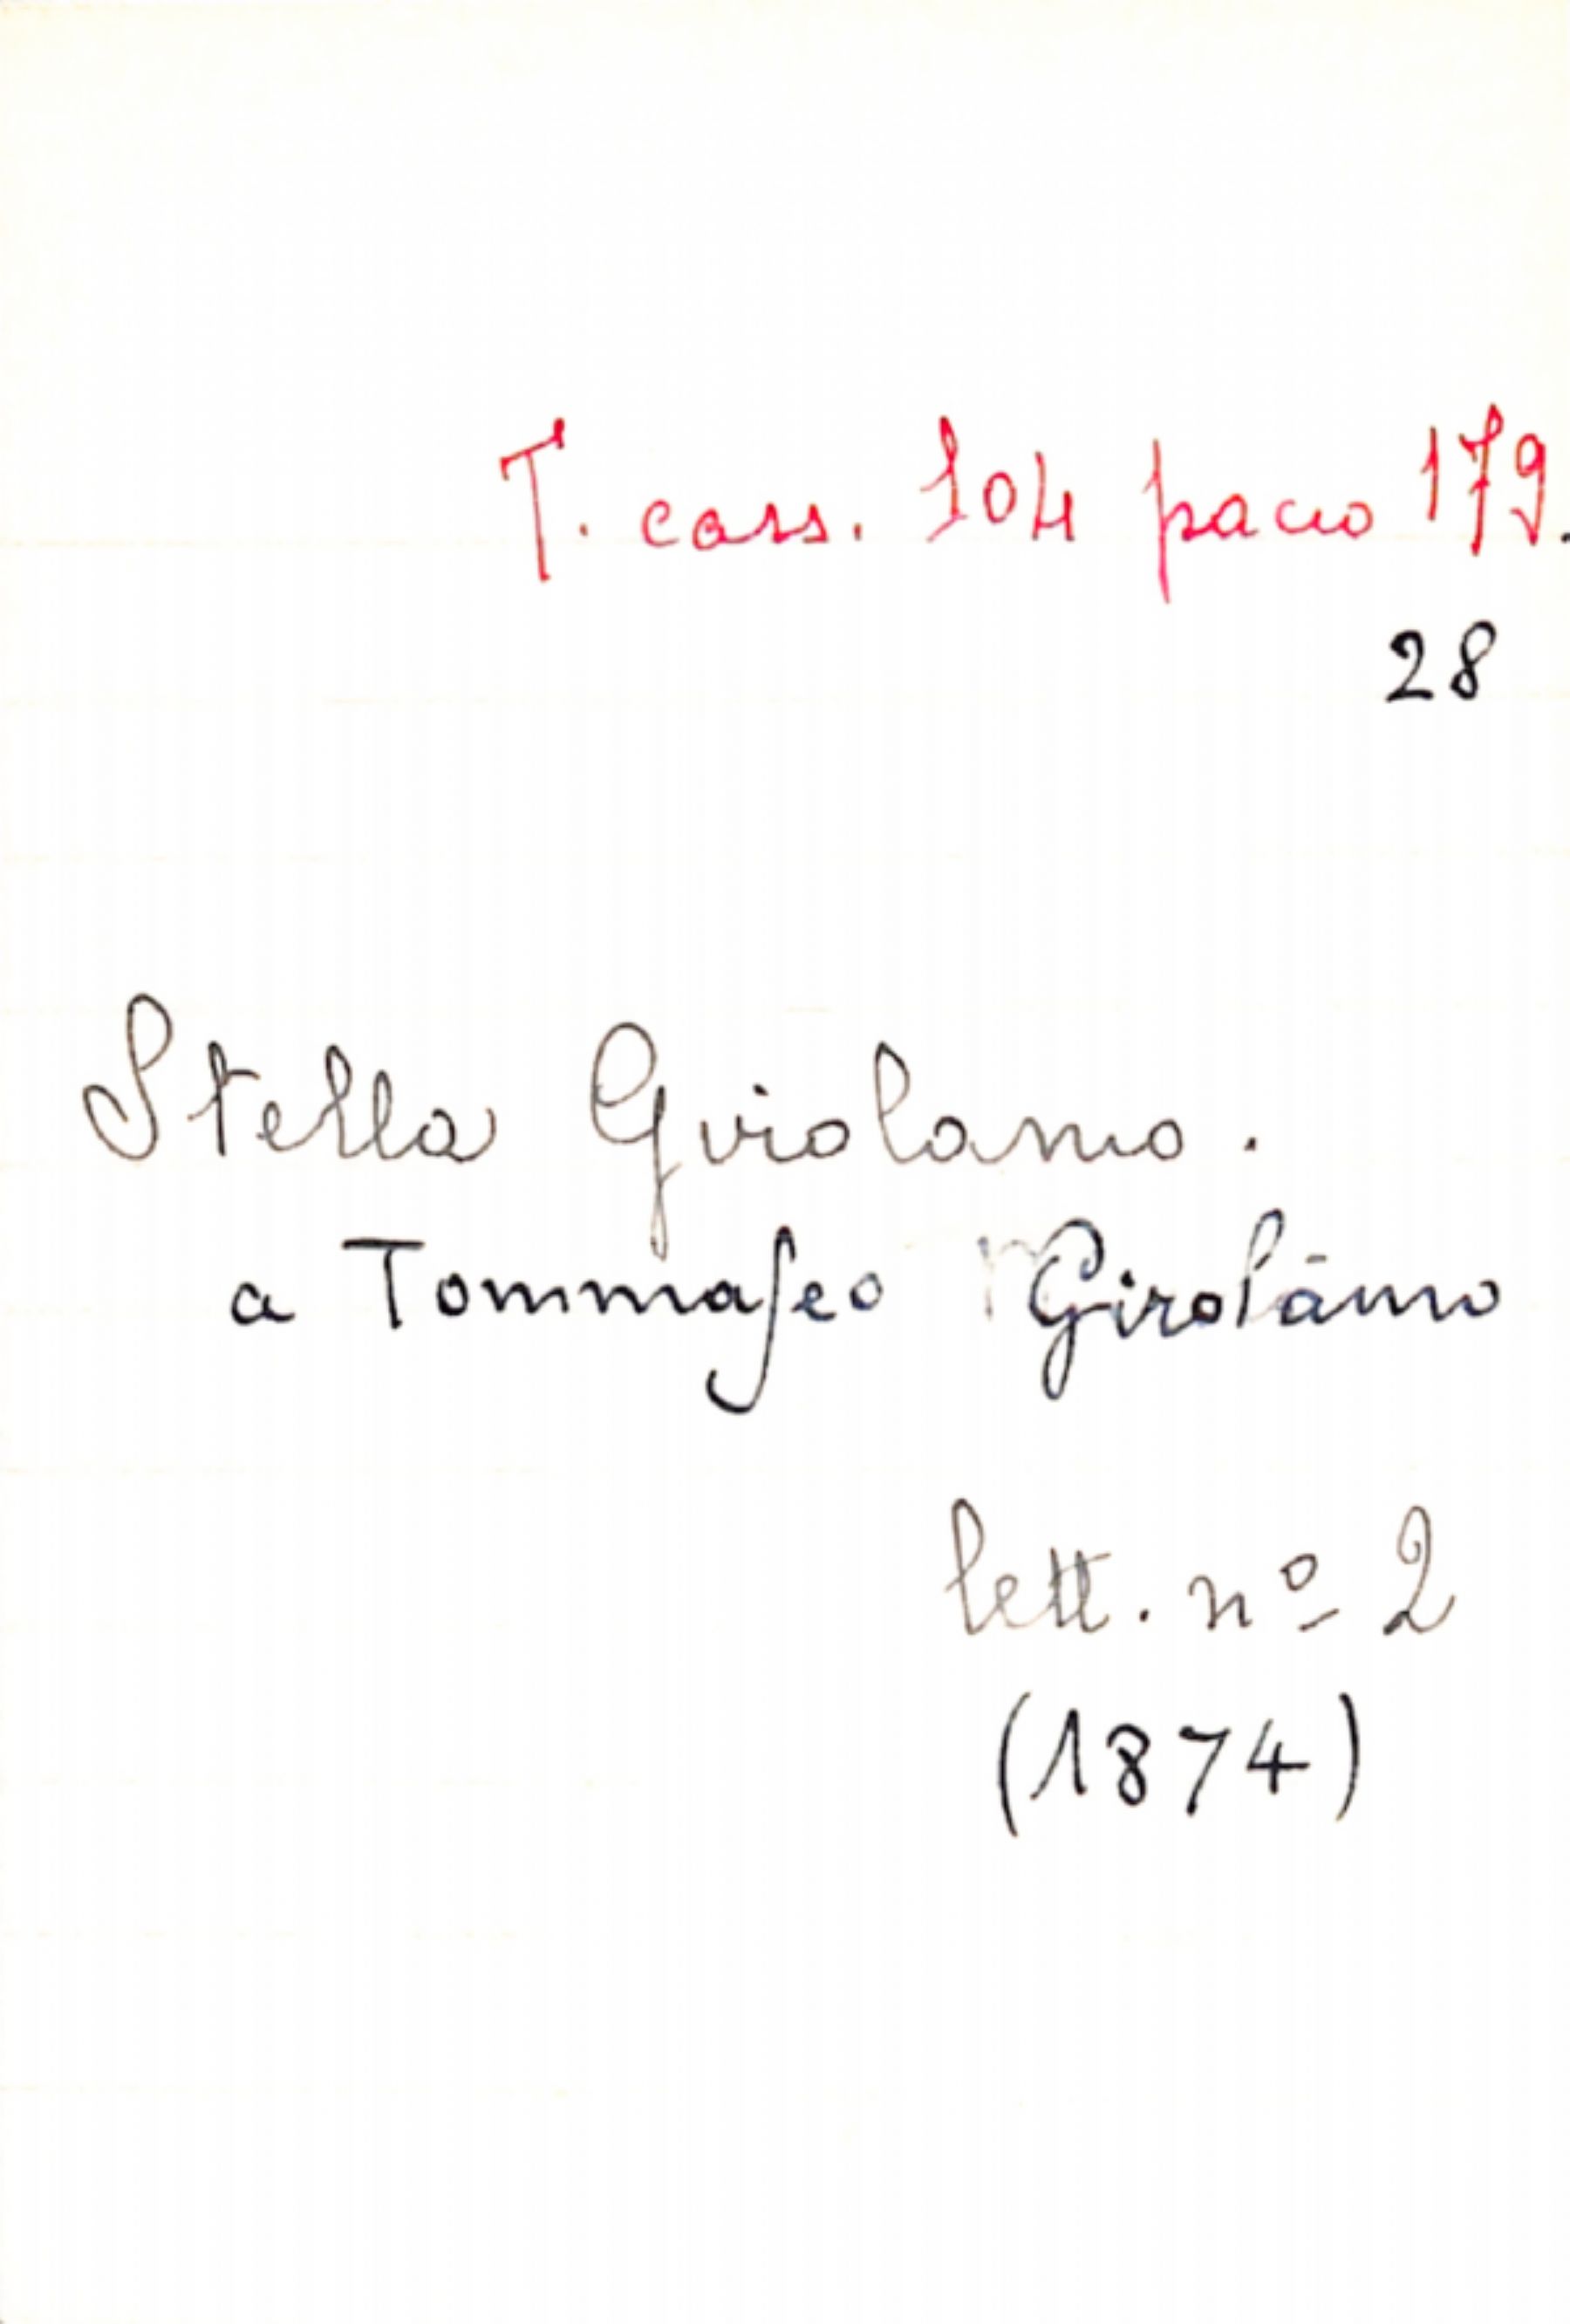 T. cass. 104 pacco 179.
28
Stella Girolamo.
a Tommaseo Girolamo
lett. nº 2
(1874)